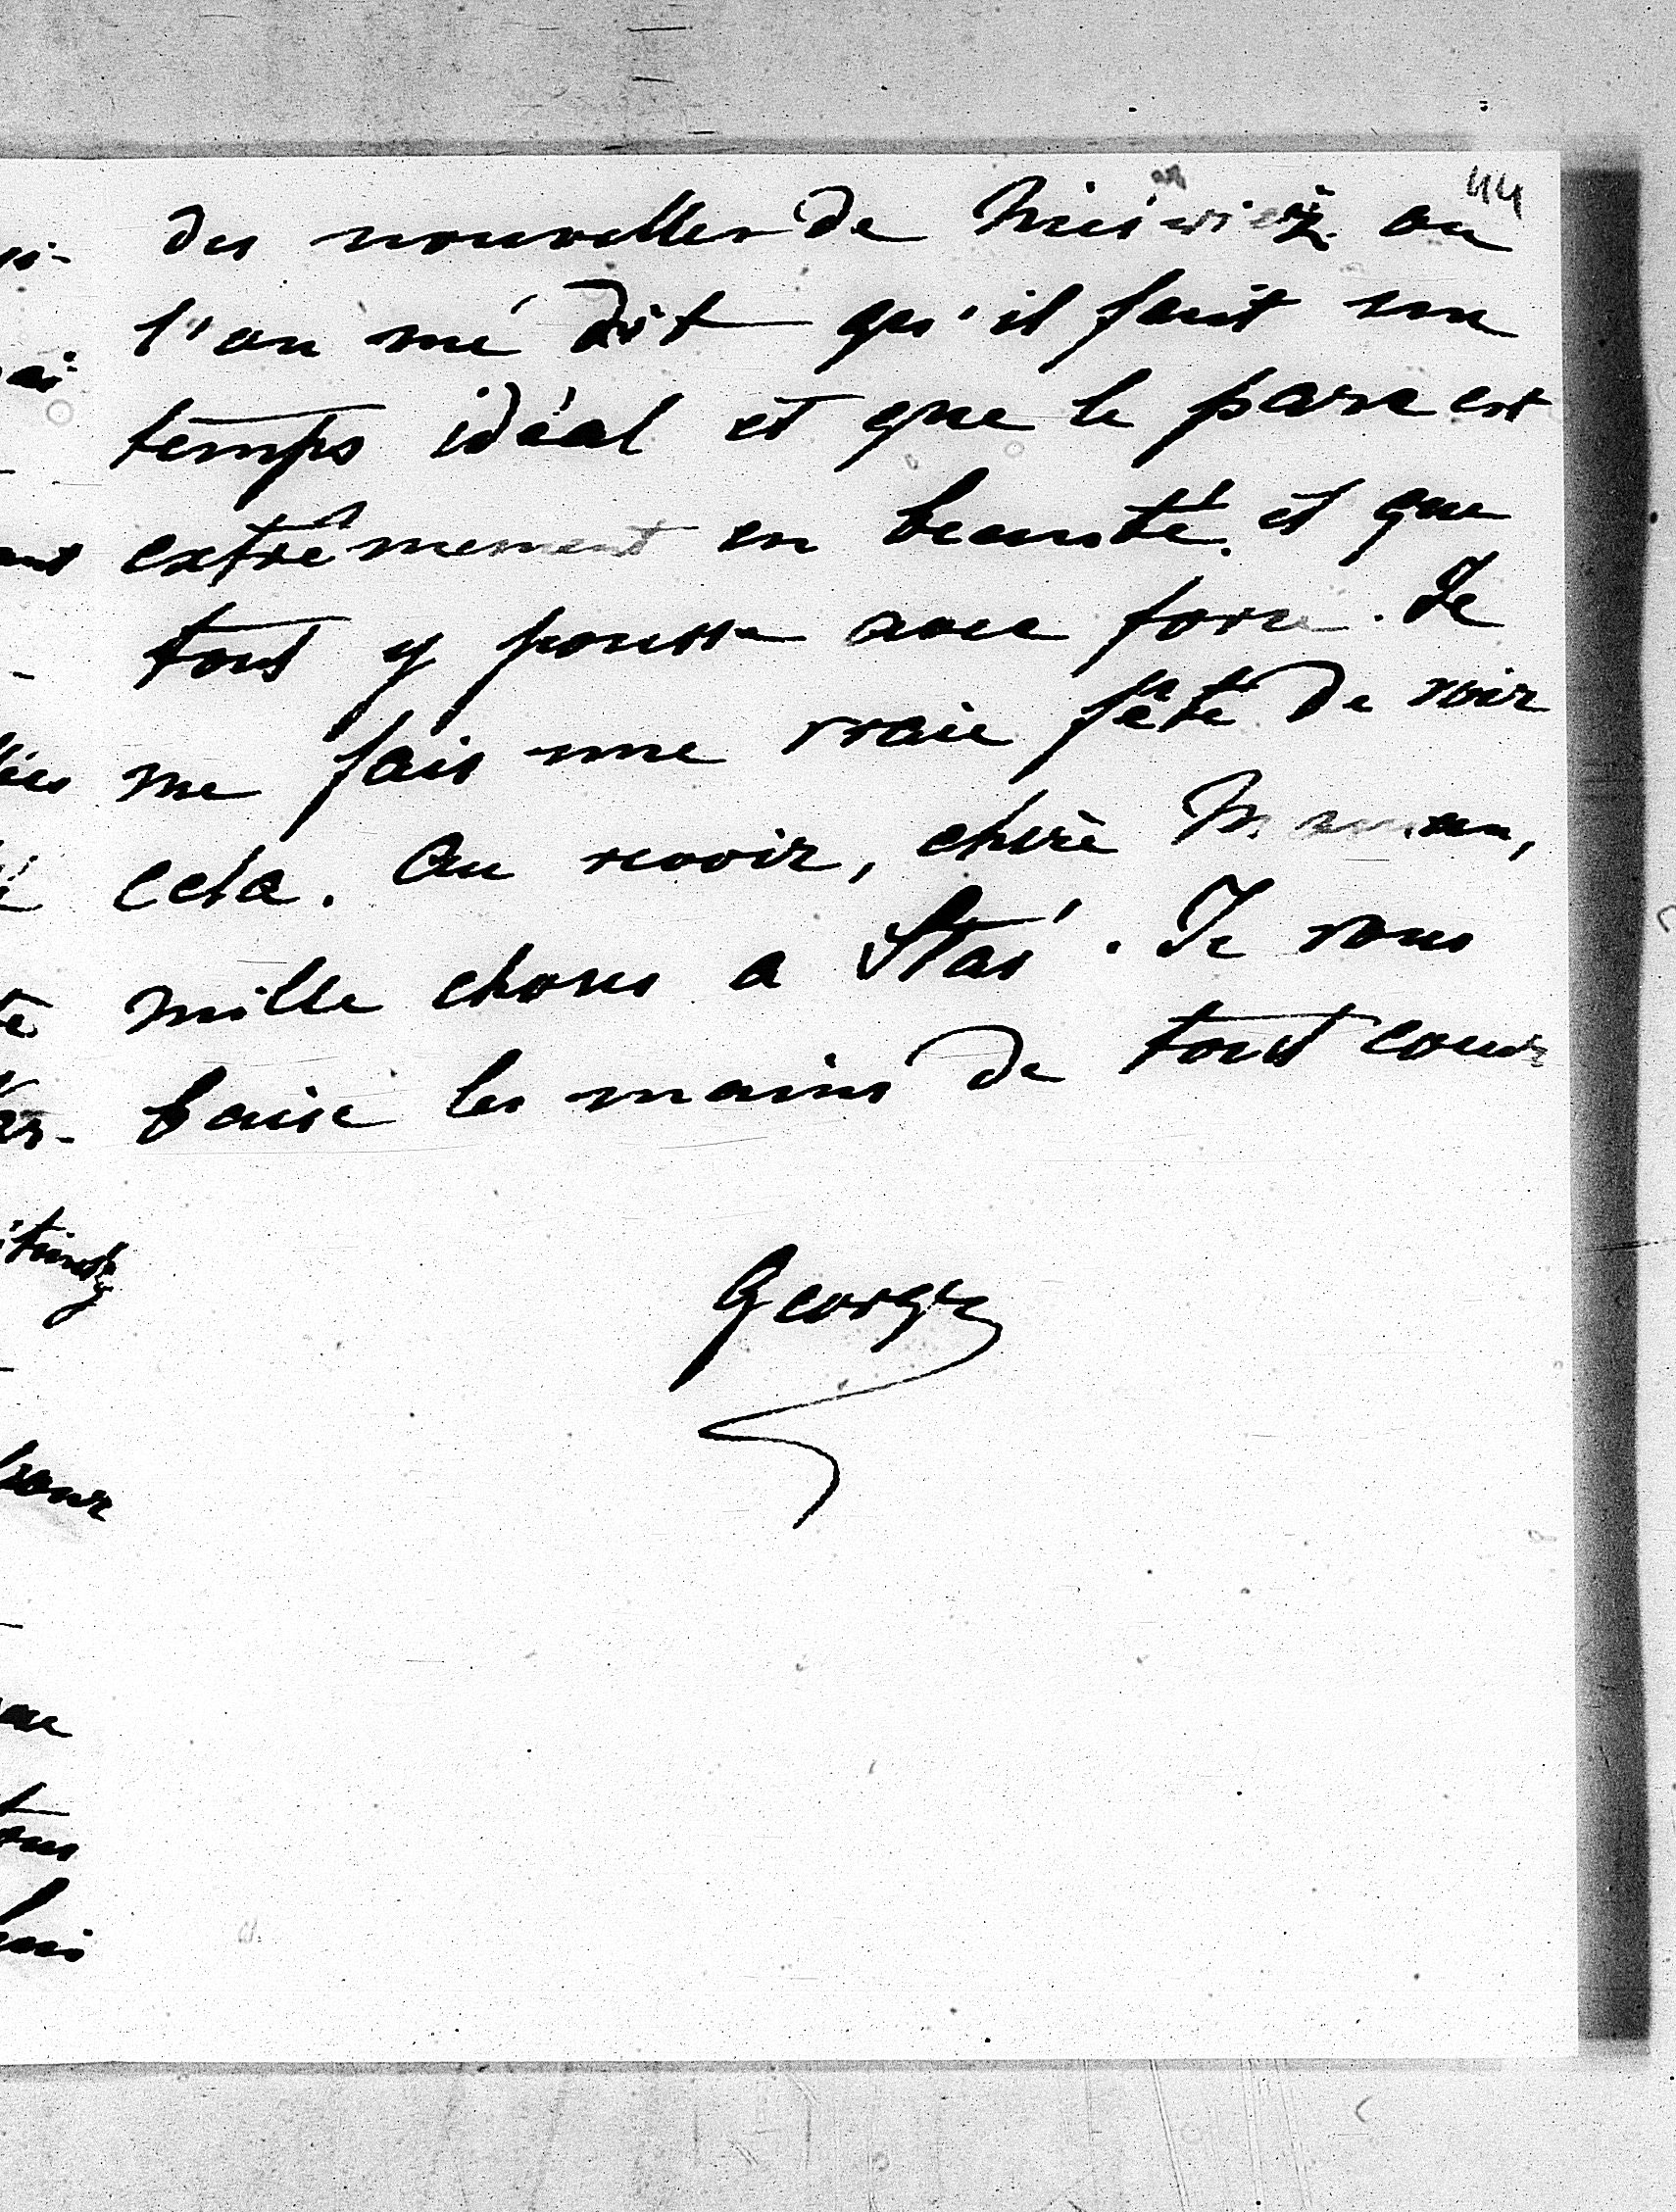 44
des nouvelles de Nieśwież ou
l'on me dit qu'il fait un
temps idéal et que le parc est
extrêmement en beauté et que
tout y pousse avec force. Je
me fais une vraie fête de voir
cela. Au revoir, chère Maman,
mille choses a Staś. Je vous
baise les mains de tout coeur
Georges
pour